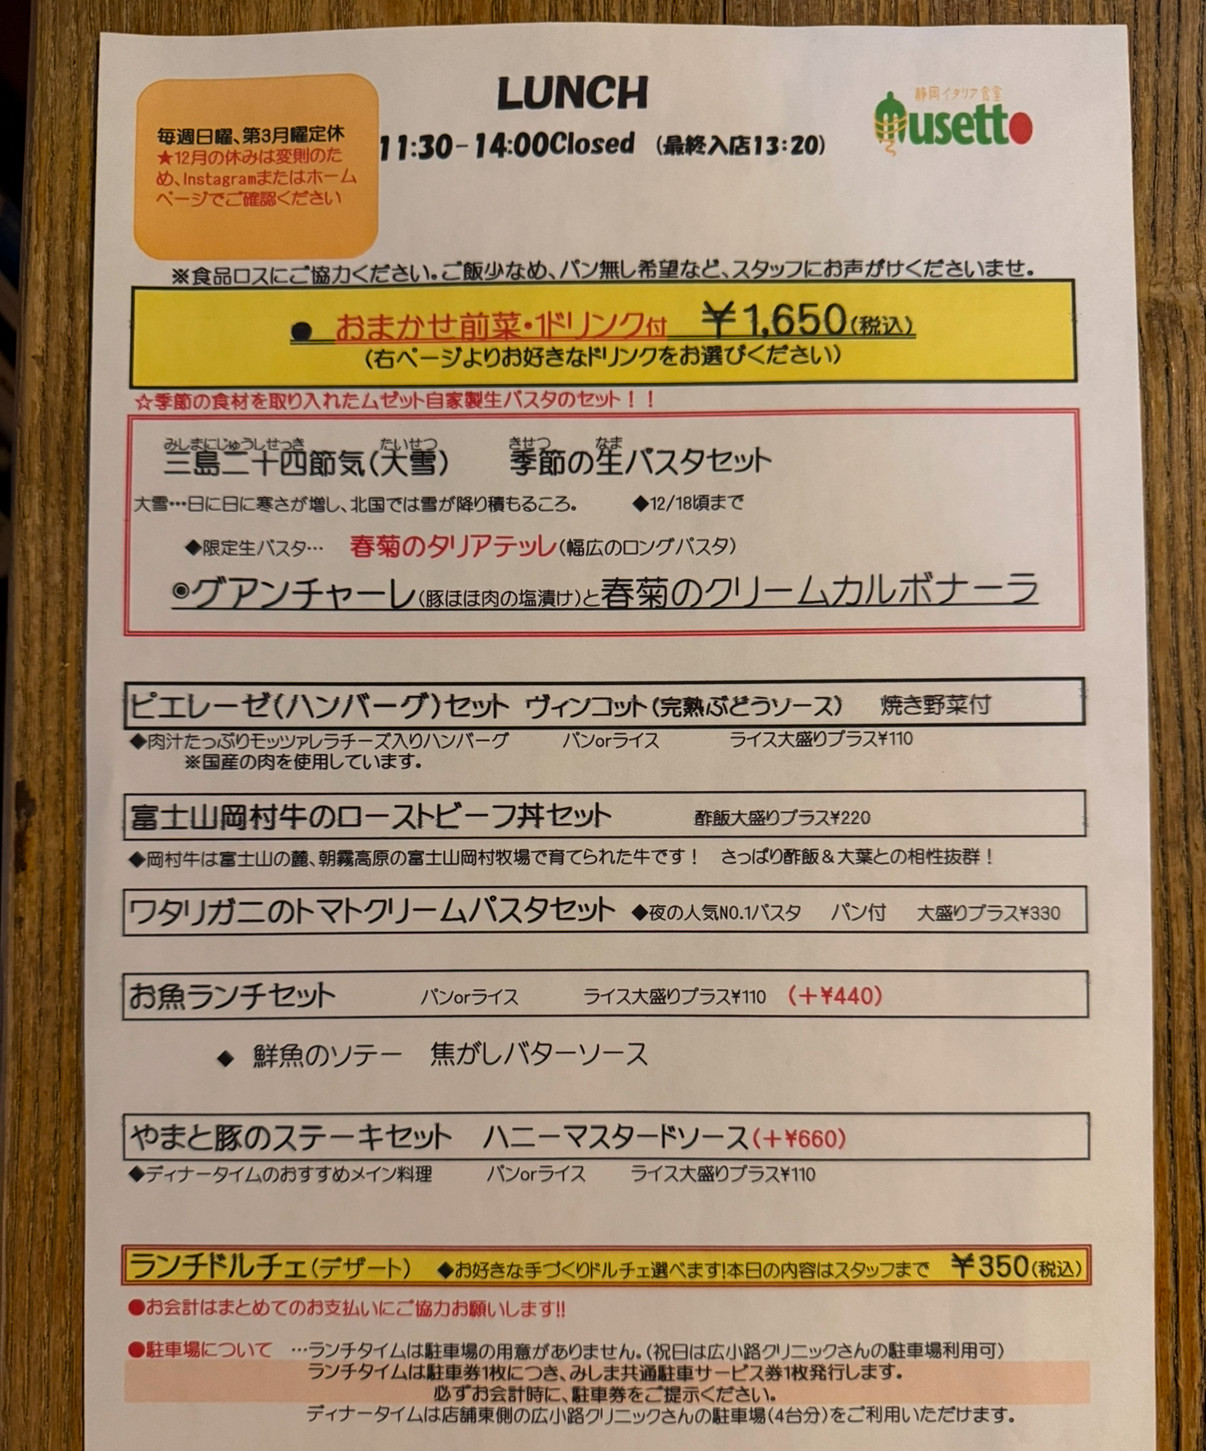 LUNCH
11:30-14:00Closed (最終入店13:20)
静岡イタリア食堂
musetto
毎週日曜、第3月曜定休
★12月の休みは変則のた
め、Instagramまたはホーム
ページでご確認ください
※食品ロスにご協力ください。ご飯少なめ、パン無し希望など、スタッフにお声がけくださいませ。
● おまかせ前菜・1ドリンク付 ￥1,650(税込)
(右ページよりお好きなドリンクをお選びください)
☆季節の食材を取り入れたムゼット自家製生パスタのセット！！
みしまにじゅうしせっき たいせつ きせつ なま
三島二十四節気(大雪) 季節の生パスタセット
大雪…日に日に寒さが増し、北国では雪が降り積もるころ。 ◆12/18頃まで
◆限定生パスタ… 春菊のタリアテッレ(幅広のロングパスタ)
◉グアンチャーレ(豚ほほ肉の塩漬け)と春菊のクリームカルボナーラ
ピエレーゼ(ハンバーグ)セット ヴィンコット(完熟ぶどうソース) 焼き野菜付
◆肉汁たっぷりモッツァレラチーズ入りハンバーグ パンorライス ライス大盛りプラス¥110
※国産の肉を使用しています。
富士山岡村牛のローストビーフ丼セット 酢飯大盛りプラス¥220
◆岡村牛は富士山の麓、朝霧高原の富士山岡村牧場で育てられた牛です！ さっぱり酢飯＆大葉との相性抜群！
ワタリガニのトマトクリームパスタセット ◆夜の人気NO.1パスタ パン付 大盛りプラス¥330
お魚ランチセット パンorライス ライス大盛りプラス¥110 (＋¥440)
◆ 鮮魚のソテー 焦がしバターソース
やまと豚のステーキセット ハニーマスタードソース(＋¥660)
◆ディナータイムのおすすめメイン料理 パンorライス ライス大盛りプラス¥110
ランチドルチェ(デザート) ◆お好きな手づくりドルチェ選べます!本日の内容はスタッフまで ￥350(税込)
●お会計はまとめてのお支払いにご協力お願いします!!
●駐車場について …ランチタイムは駐車場の用意がありません。(祝日は広小路クリニックさんの駐車場利用可)
ランチタイムは駐車券1枚につき、みしま共通駐車サービス券1枚発行します。
必ずお会計時に、駐車券をご提示ください。
ディナータイムは店舗東側の広小路クリニックさんの駐車場(4台分)をご利用いただけます。